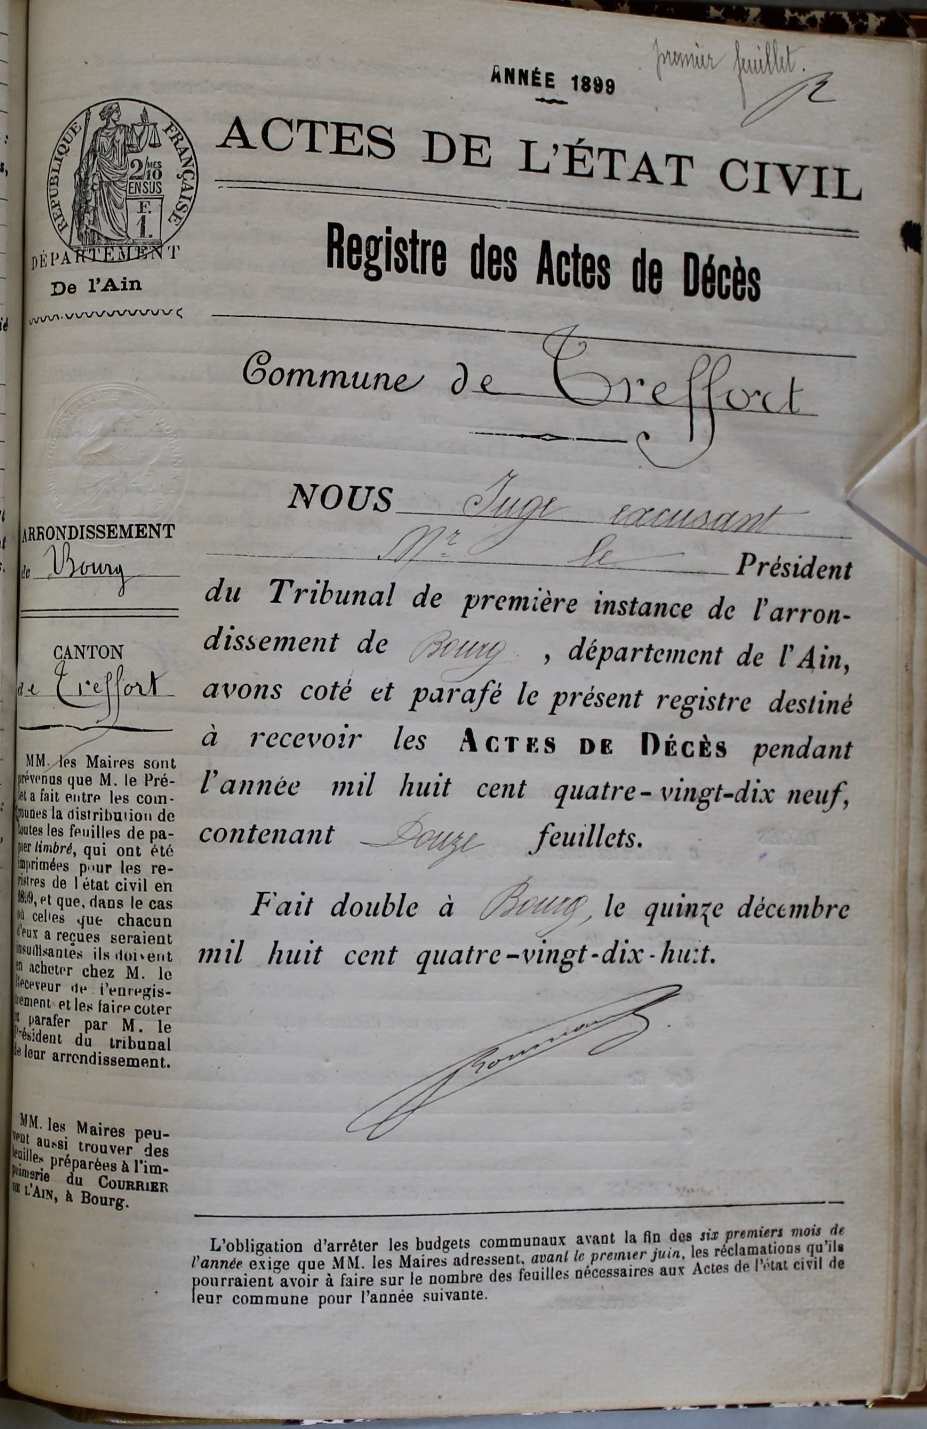 premier feuillet.
ANNÉE 1899
ACTES DE L'ÉTAT CIVIL
RÉPUBLIQUE FRANÇAISE
2/10 MES
EN SUS
F.
1.
DÉPARTEMENT
De l'Ain
Registre des Actes de Décès
Commune de Treffort
ARRONDISSEMENT
de Bourg
CANTON
de Treffort
MM. les Maires sont
prévenus que M. le Pré-
fet a fait entre les com-
munes la distribution de
toutes les feuilles de pa-
pier timbré, qui ont été
imprimées pour les re-
gistres de l'état civil en
1899, et que, dans le cas
où celles que chacun
d'eux a reçues seraient
insuffisantes ils doivent
en acheter chez M. le
Receveur de l'enregis-
trement et les faire coter
et parafer par M. le
Président du tribunal
de leur arrondissement.
MM. les Maires peu-
vent aussi trouver des
feuilles préparées à l'im-
primerie du COURRIER
DE L'AIN, à Bourg.
NOUS Juge excusant
Mr le Président
du Tribunal de première instance de l'arron-
dissement de Bourg, département de l'Ain,
avons coté et parafé le présent registre destiné
à recevoir les ACTES DE DÉCÈS pendant
l'année mil huit cent quatre-vingt-dix neuf,
contenant Douze feuillets.
Fait double à Bourg, le quinze décembre
mil huit cent quatre-vingt-dix-huit.
L'obligation d'arrêter les budgets communaux avant la fin des six premiers mois de
l'année exige que MM. les Maires adressent, avant le premier juin, les réclamations qu'ils
pourraient avoir à faire sur le nombre des feuilles nécessaires aux Actes de l'état civil de
leur commune pour l'année suivante.